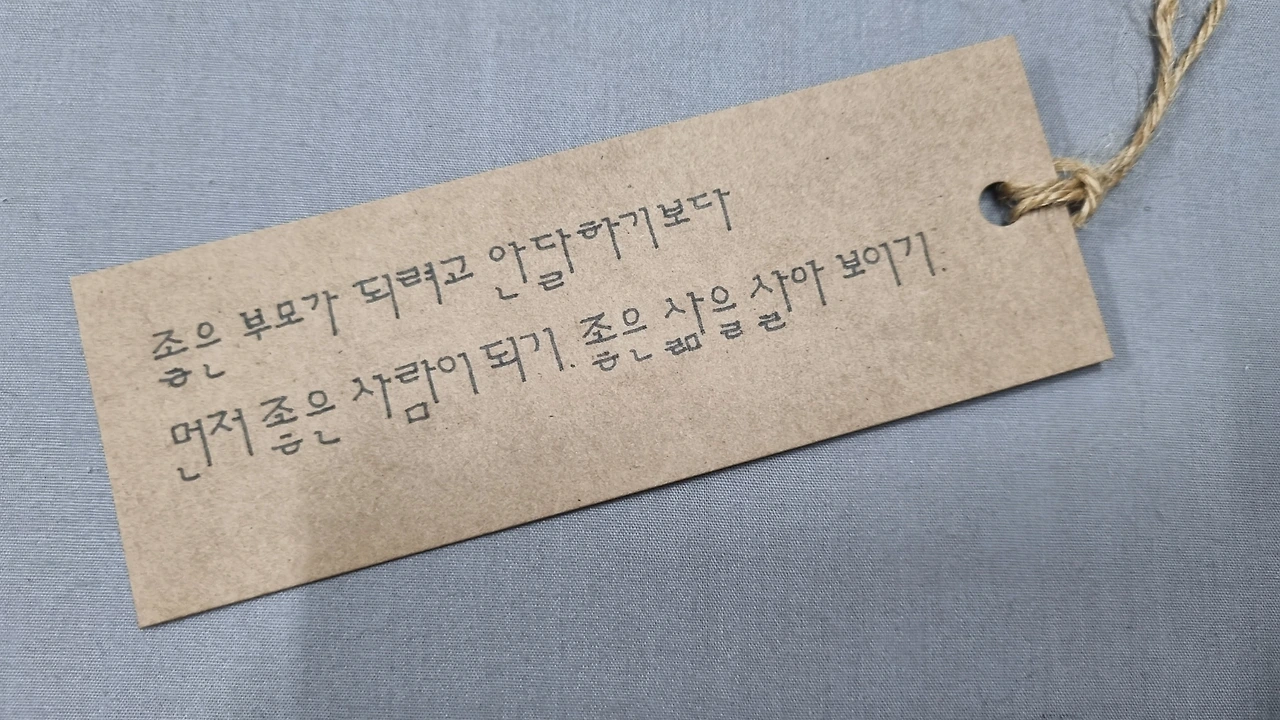 좋은 부모가 되려고 안달하기보다
먼저 좋은 사람이 되기. 좋은 삶을 살아 보이기.